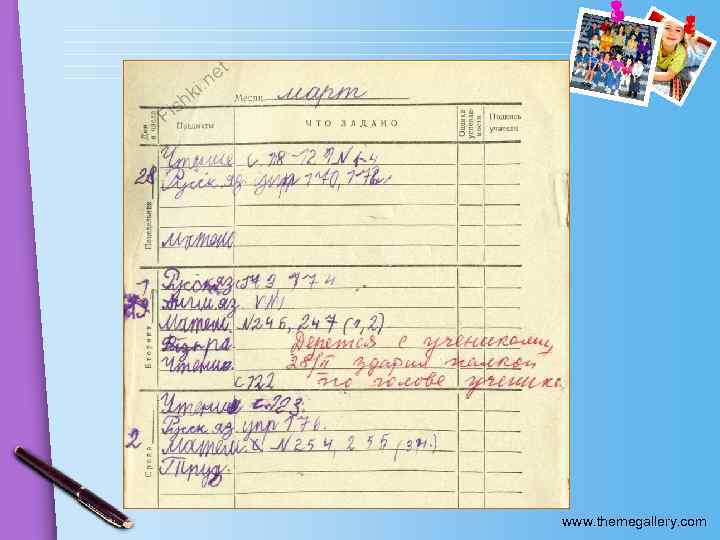 Fishki.net
Месяц март
Дни и числа
Предметы
ЧТО ЗАДАНО
Оценка успеваемости
Подпись учителя
Понедельник
28
Чтение
Русск яз. упр 170, 172.
матем
Вторник
Русск яз
Англ яз. VIII
Матем. №246, 247 (1,2)
Дерется с учениками,
Чтение.
28/II здарил палкой
с 122
по голове ученика
Среда
2
Чтение с. 123.
Русск яз упр 176.
Матем. №254, 255 (эк.)
Труд.
www.themegallery.com